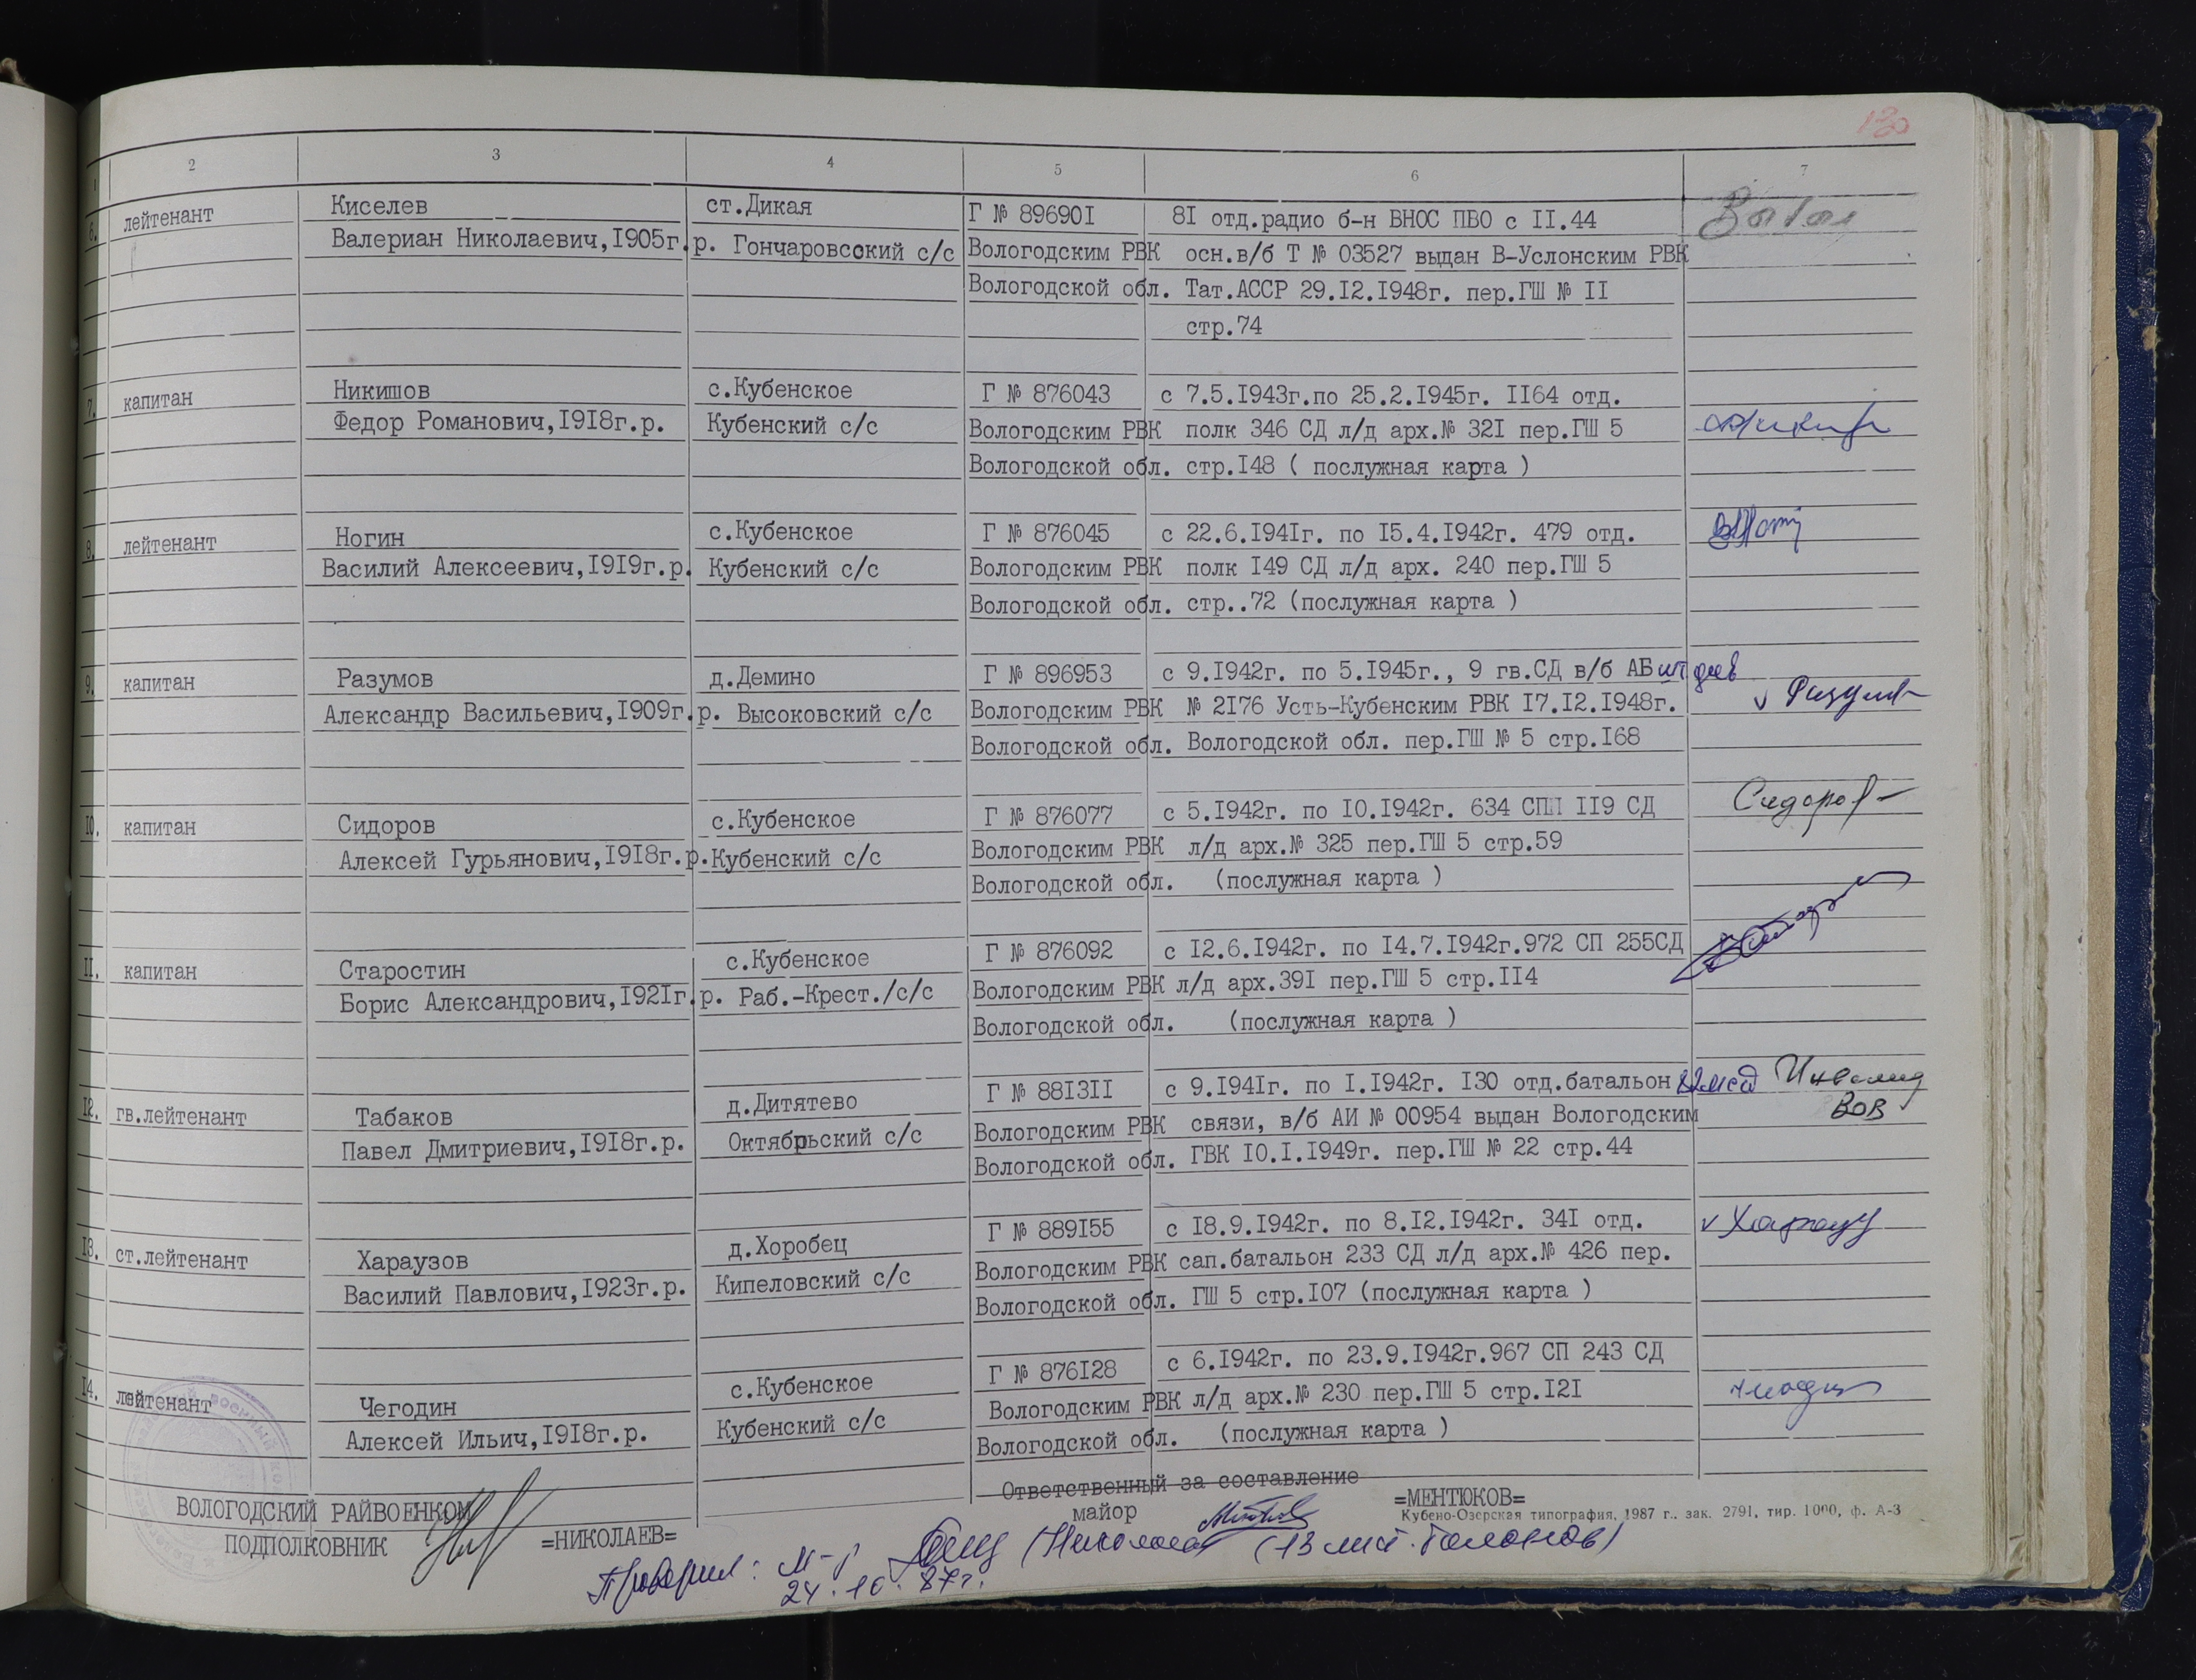 130
1 2 3 4 5 6 7
6. лейтенант Киселев ст.Дикая Г № 89690I 8I отд.радио б-н ВНОС ПВО с II.44
Валериан Николаевич,I905г.р. Гончаровсокий с/с Вологодским РВК осн.в/б Т № 03527 выдан В-Услонским РВК
Вологодской обл. Тат.АССР 29.I2.I948г. пер.ГШ № II
стр.74
7. капитан Никишов с.Кубенское Г № 876043 с 7.5.I943г.по 25.2.I945г. II64 отд.
Федор Романович,I9I8г.р. Кубенский с/с Вологодским РВК полк 346 СД л/д арх.№ 32I пер.ГШ 5
Вологодской обл. стр.I48 ( послужная карта )
8. лейтенант Ногин с.Кубенское Г № 876045 с 22.6.I94Iг. по I5.4.I942г. 479 отд.
Василий Алексеевич,I9I9г.р. Кубенский с/с Вологодским РВК полк I49 СД л/д арх. 240 пер.ГШ 5
Вологодской обл. стр..72 (послужная карта )
9. капитан Разумов д.Демино Г № 896953 с 9.I942г. по 5.I945г., 9 гв.СД в/б АБ
Александр Васильевич,I909г.р. Высоковский с/с Вологодским РВК № 2I76 Усть-Кубенским РВК I7.I2.I948г.
Вологодской обл. Вологодской обл. пер.ГШ № 5 стр.I68
10. капитан Сидоров с.Кубенское Г № 876077 с 5.I942г. по I0.I942г. 634 СПП II9 СД Сидоров
Алексей Гурьянович,I9I8г.р. Кубенский с/с Вологодским РВК л/д арх.№ 325 пер.ГШ 5 стр.59
Вологодской обл. (послужная карта )
II. капитан Старостин с.Кубенское Г № 876092 с I2.6.I942г. по I4.7.I942г.972 СП 255СД
Борис Александрович,I92Iг.р. Раб.-Крест./с/с Вологодским РВК л/д арх.39I пер.ГШ 5 стр.II4
Вологодской обл. (послужная карта )
I2. гв.лейтенант Табаков д.Дитятево Г № 88I3II с 9.I94Iг. по I.I942г. I30 отд.батальон Инвалид
Павел Дмитриевич,I9I8г.р. Октябрьский с/с Вологодским РВК связи, в/б АИ № 00954 выдан Вологодским ВОВ
Вологодской обл. ГВК I0.I.I949г. пер.ГШ № 22 стр.44
I3. ст.лейтенант Хараузов д.Хоробец Г № 889I55 с I8.9.I942г. по 8.I2.I942г. 34I отд.
Василий Павлович,I923г.р. Кипеловский с/с Вологодским РВК сап.батальон 233 СД л/д арх.№ 426 пер.
Вологодской обл. ГШ 5 стр.I07 (послужная карта )
I4. лейтенант Чегодин с.Кубенское Г № 876I28 с 6.I942г. по 23.9.I942г.967 СП 243 СД
Алексей Ильич,I9I8г.р. Кубенский с/с Вологодским РВК л/д арх.№ 230 пер.ГШ 5 стр.I2I
Вологодской обл. (послужная карта )
Ответственный за составление
ВОЛОГОДСКИЙ РАЙВОЕНКОМ майор =МЕНТЮКОВ=
Кубено-Озерская типография, 1987 г., зак. 2791, тир. 1000, ф. А-3
ПОДПОЛКОВНИК =НИКОЛАЕВ=
Проверил: м-р (13 лис. талонов)
24.10.87г.